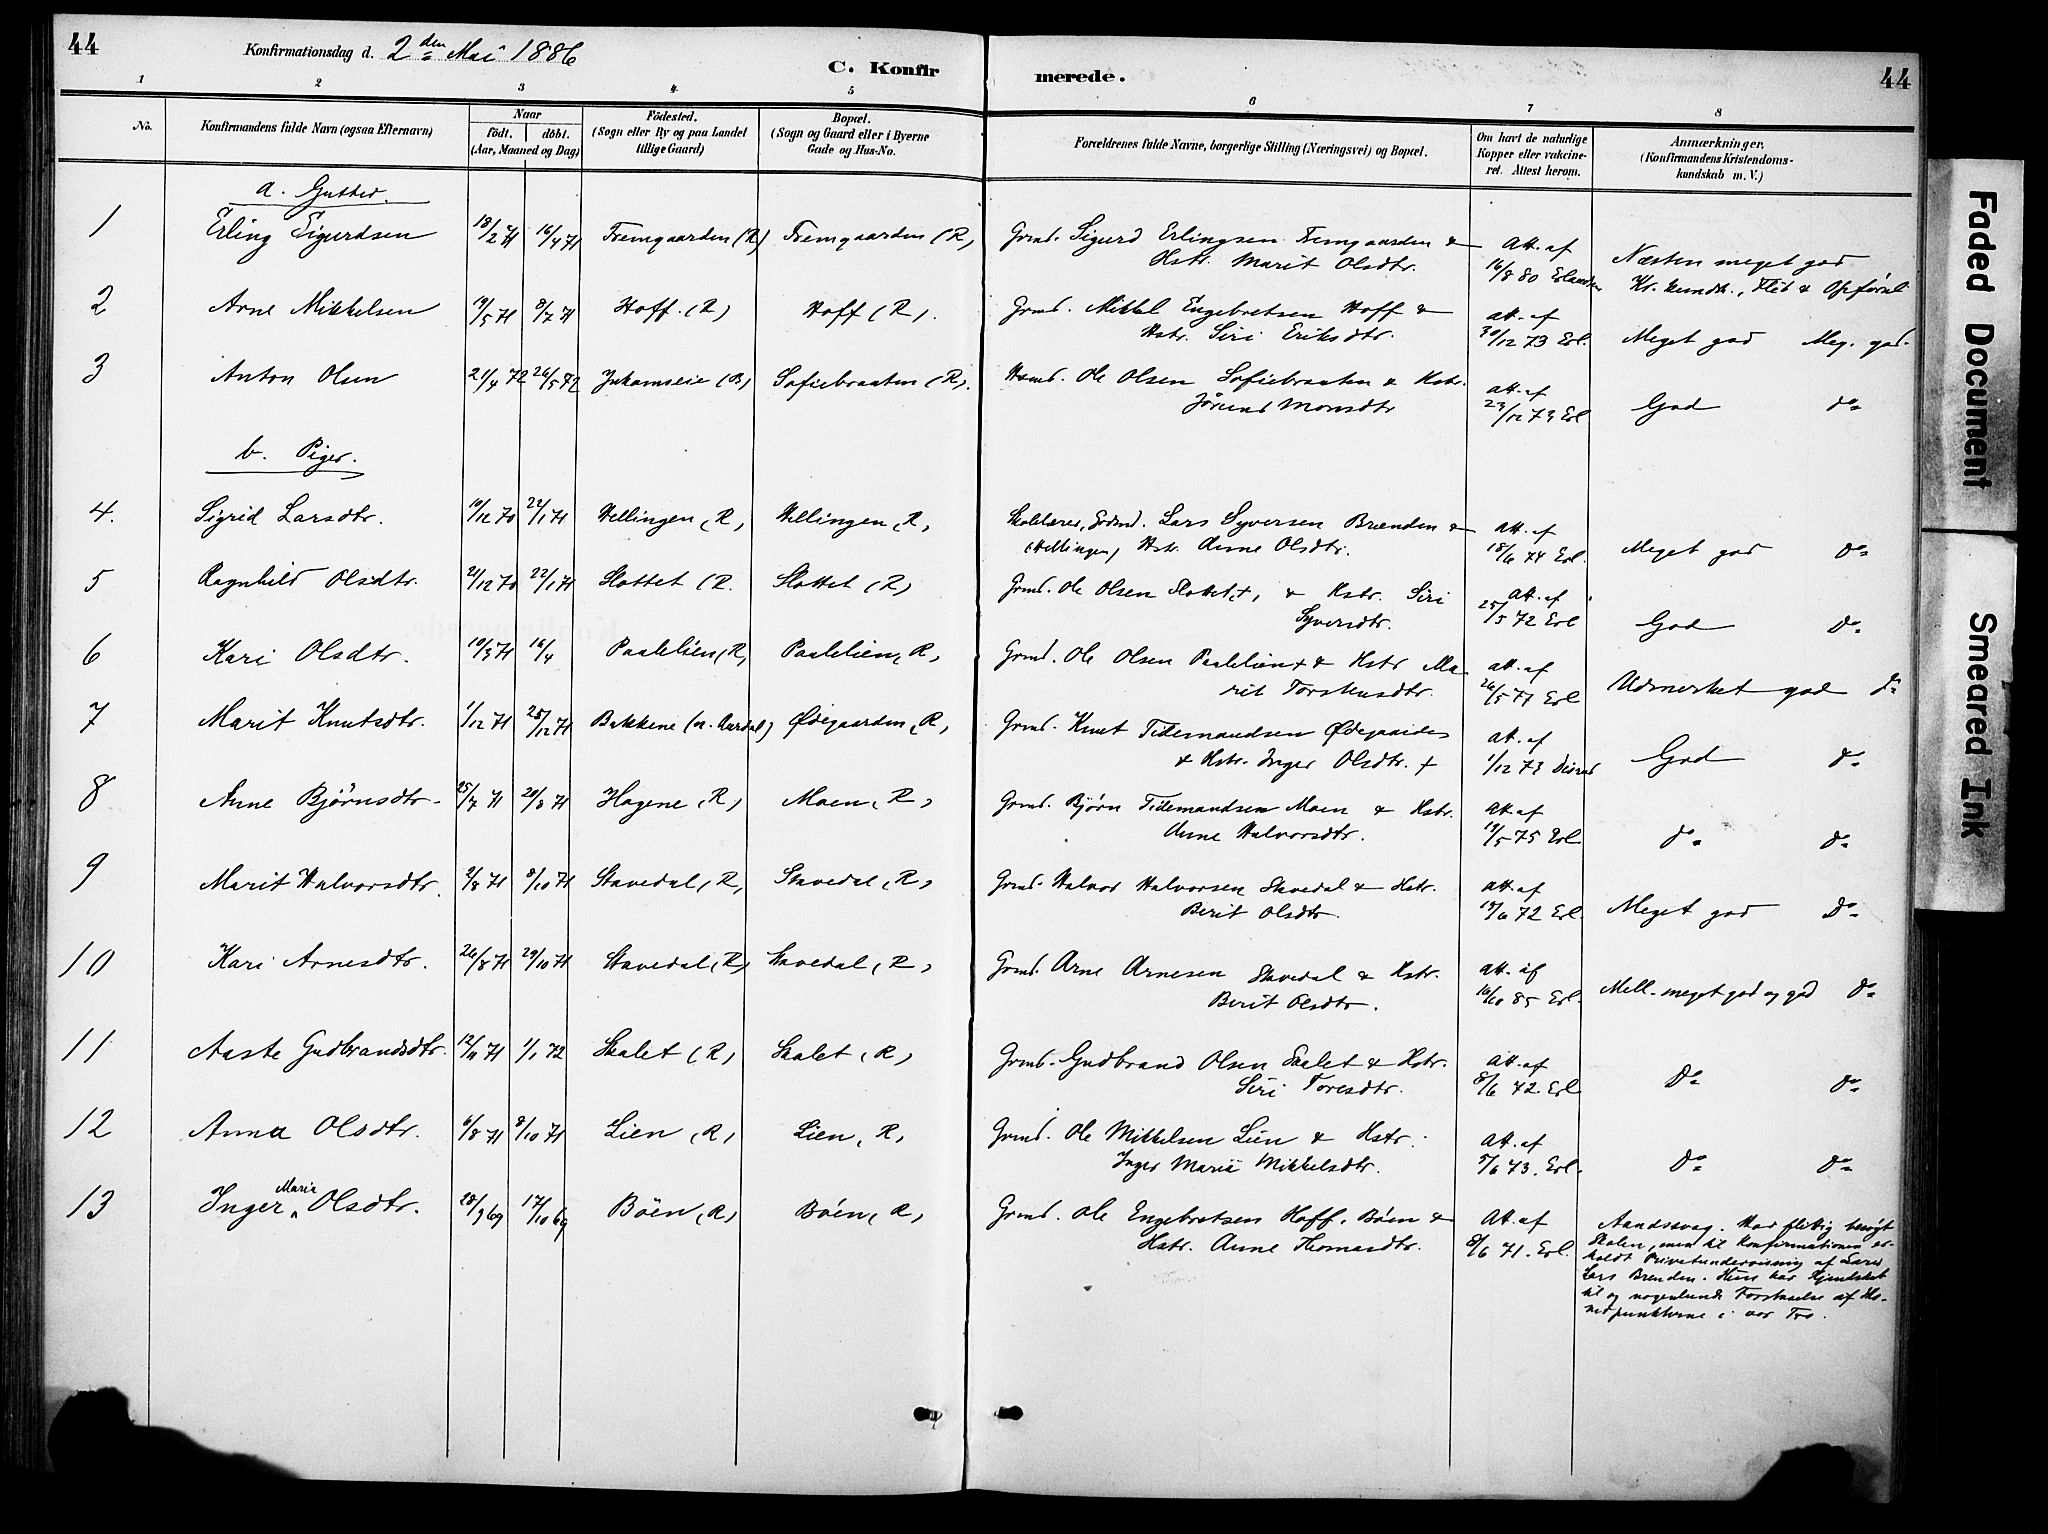 44
Konfirmationsdag d. 2den Mai 1886
C. Konfirmerede.
44
1 2 3 4 5 6 7 8
No.
Konfirmandens fulde Navn (ogsaa Efternavn)
Naar
födt. döbt.
(Aar, Maaned og Dag)
Födested.
(Sogn eller By og paa Landet
tillige Gaard)
Bopæl.
(Sogn og Gaard eller i Byerne
Gade og Hus-No.
Forældrenes fulde Navne, borgerlige Stilling (Næringsvei) og Bopæl.
Om havt de naturlige
Kopper eller vakcine-
ret. Attest herom.
Anmærkninger.
(Konfirmandens Kristendoms-
kundskab m. V.)
a. Gutter.
1 Erling Sigurdsen 18/2 71 16/4 71 Fremgaarden (R) Fremgaarden (R) Grmd. Sigurd Erlingsen Fremgaarden &
Hstr. Marit Olsdtr.
Att. af
16/8 80 Erlandsen
Næsten meget god
Kr. kundsk., Flid & Opførsel
2 Arne Mikkelsen 19/5 71 9/7 71 Hoff. (R) Hoff (R). Grmd. Mikkel Engebretsen Hoff &
Hstr. Siri Eriksdtr.
att. af
30/12 73 Erl.
Meget god Meg. god.
3 Anton Olsen 21/4 72 26/5 72 (B) Sofiebraaten (R). Hsmd. Ole Olsen Sofiebraaten & Hstr.
Jørend Monsdtr
att. af
23/12 73 Erl
God do
b. Piger.
4. Sigrid Larsdtr. 10/12 70 22/1 71 Hellingen (R) Hellingen (R) Skolelærer, Grdmd. Lars Syversen Brenden &
(Hellingen) Hstr. Anne Olsdtr.
att. af
18/6 74 Erl.
Meget god do
5 Ragnhild Olsdtr. 21/12 70 22/1 71 Slottet (R. Slottet (R) Grmd. Ole Olsen Slottet +, & Hstr. Siri
Syversdtr.
att. af
25/5 72 Erl
God do
6 Kari Olsdtr. 10/3 71 16/4 Paalelien (R, Paalelien (R, Grmd. Ole Olsen Paalelien + & Hstr Ma-
rit Torstensdtr.
att. af
26/5 77 Erl
Udmerket god do
7 Marit Knutsdtr. 1/12 71 25/12 71 Bakkene (n. Aurdal) Ødegaarden (R, Grmd. Knut Tidemandsen Ødegaarden
& Hstr. Inger Olsdtr. +
att. af
1/12 73
God do
8 Anne Bjørnsdtr. 25/7 71 20/8 71 Hagene (R) Moen (R) Grmd. Bjørn Tidemandsen Moen & Hstr.
Anne Halvorsdtr.
att. af
19/5 75 Erl.
do do
9 Marit Halvorsdtr. 2/8 71 8/10 71 Stavedal (R, Stavedal (R) Grmd. Halvor Halvorsen Stavedal & Hstr.
Berit Olsdtr.
att. af
19/6 72 Erl.
Meget god do
10 Kari Arnesdtr. 26/8 71 29/10 71 Stavedal (R) Stavedal (R) Grmd. Arne Arnesen Stavedal & Hstr.
Berit Olsdtr.
att. af
16/10 85 Erl.
Mell. meget god og god do
11 Aaste Gudbrandsdtr. 12/11 71 1/1 72 Skalet (R) Skalet (R) Grmd. Gudbrand Olsen Skalet & Hstr.
Siri Toresdtr.
att. af
8/6 72 Erl
do do
12 Anna Olsdtr. 6/8 71 8/10 71 Lien (R) Lien (R) Grmd. Ole Mikkelsen Lien & Hstr.
Inger Marie Mikkelsdtr.
att. af
5/6 73. Erl.
do do
13 Inger Maria Olsdtr. 28/9 69 17/10 69 Böen (R) Böen (R) Grmd. Ole Engebretsen Hoff, Böen &
Hstr. Anne Thomasdtr.
Att. af
8/6 71. Erl.
Aandssvag. Har flittig besøgt
Skolen, men til Konfirmationen er-
holdt Privatundervisning af Lærer
Lars Brenden. Hun har Kjendskab
til og nogenlunde Forstaaelse af Ho-
vedpunkterne i vor Tro.
Faded Document
Smeared Ink